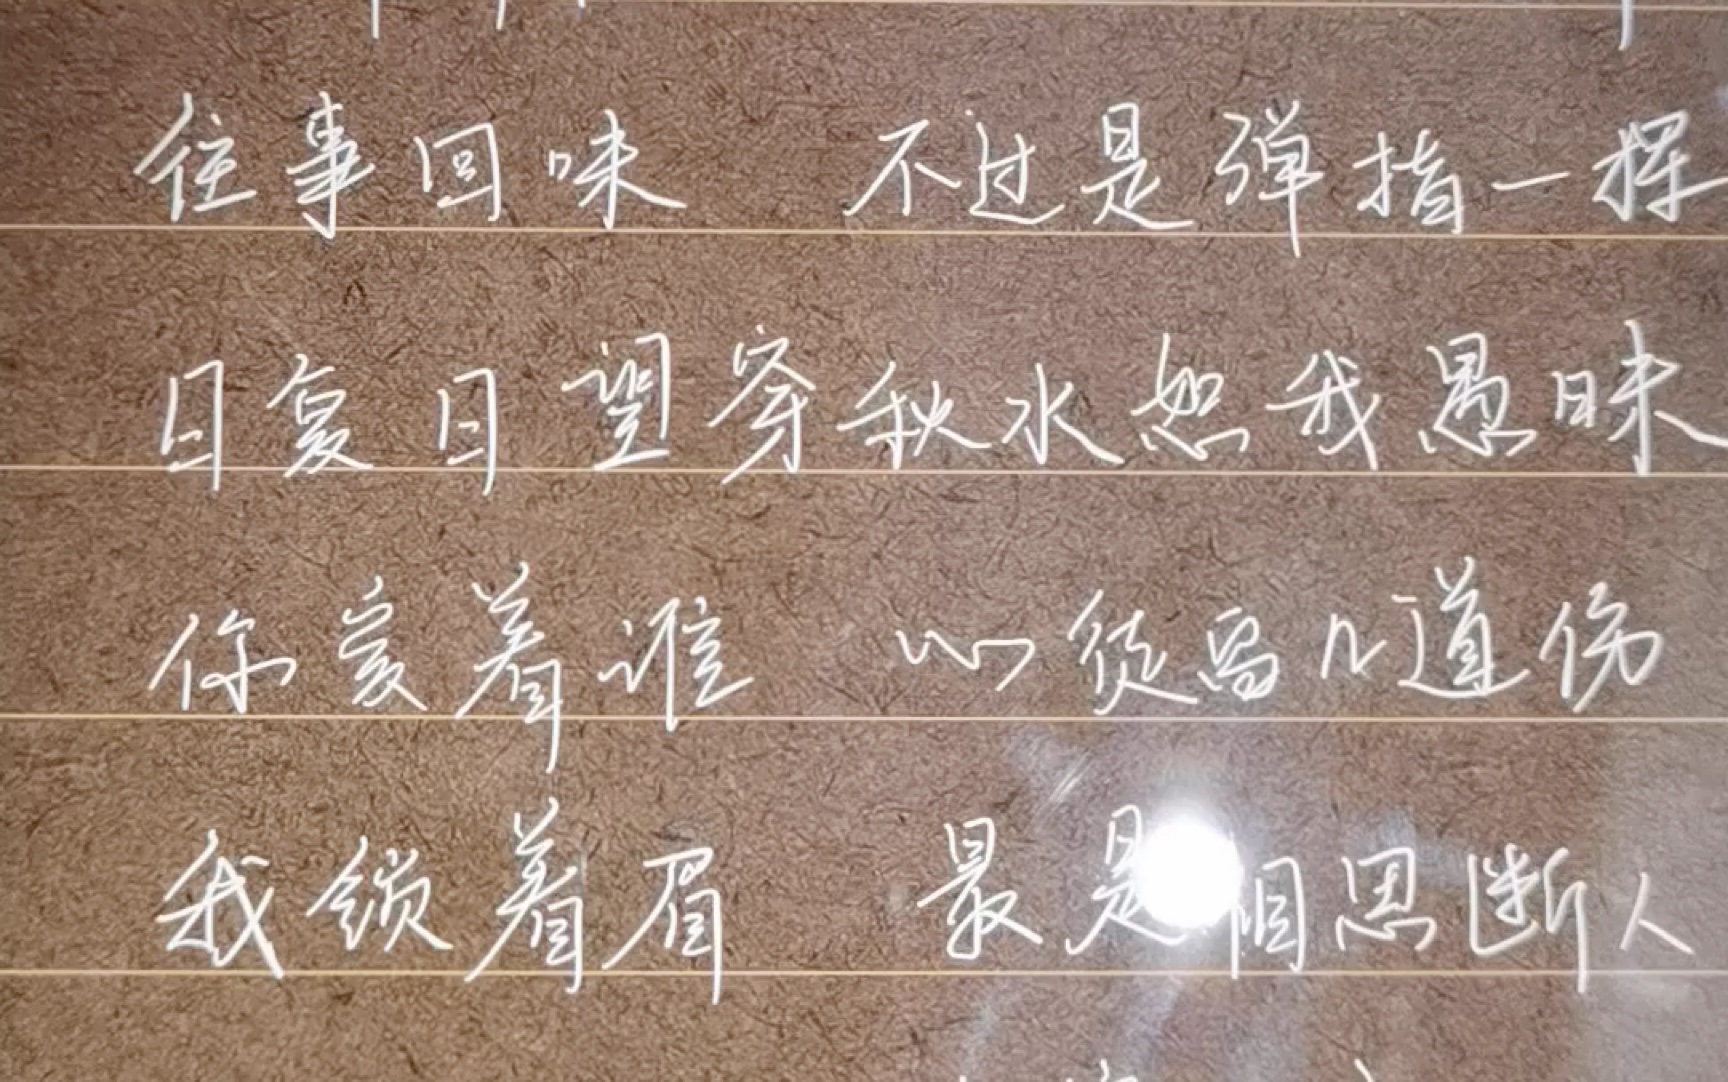 往事回味 不过是弹指一挥
日复日望穿秋水恕我愚昧
你爱着谁 心徒留几道伤
我锁着眉 最是相思断人